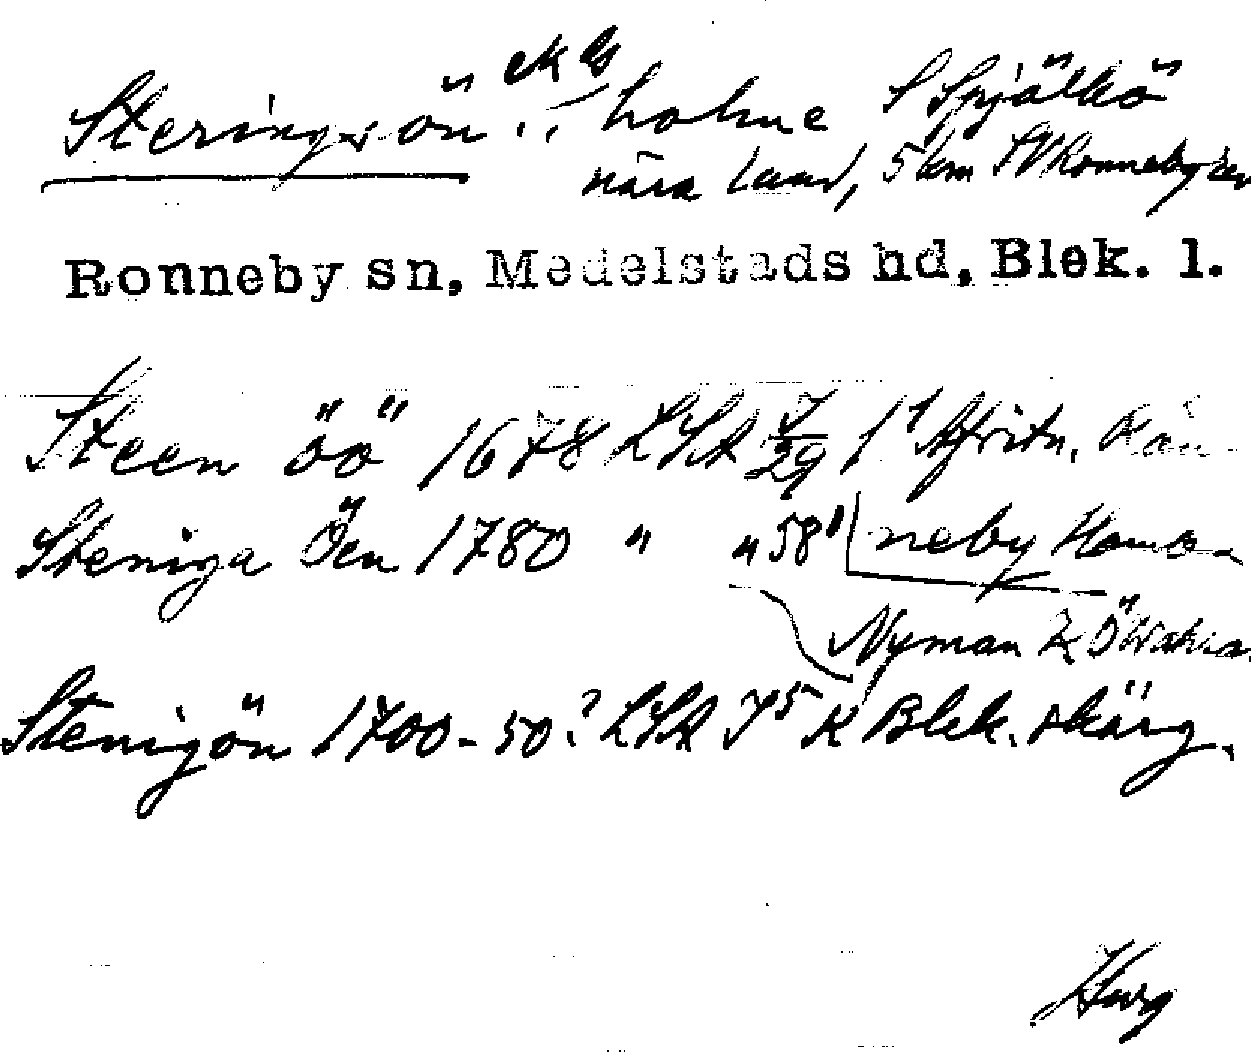 Steringsön ek bs holme S Spjälkö
nära land, 5 km SV Ronneby
Ronneby sn, Medelstads hd, Blek. l.
Steen öö 1678 LSA 7/29 1¹ Afritn. Rön-
Steniga Öen 1780 " " 58¹ neby Hamn
Nyman K Ö
Stenigön 1700-50? LSA 75 K Blek. skärg.